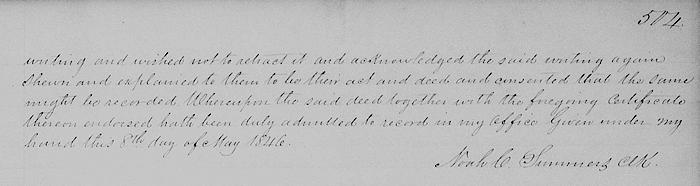 504.
writing and wished not to retract it and acknowledged the said writing again
shewn and explained to them to be their act and deed and consented that the same
might be recorded. Whereupon the said deed together with the foregoing Certificate
thereon endorsed hath been duly admitted to record in my Office Given under my
hand this 8th day of May 1846.
Noah C. Summers Clk.